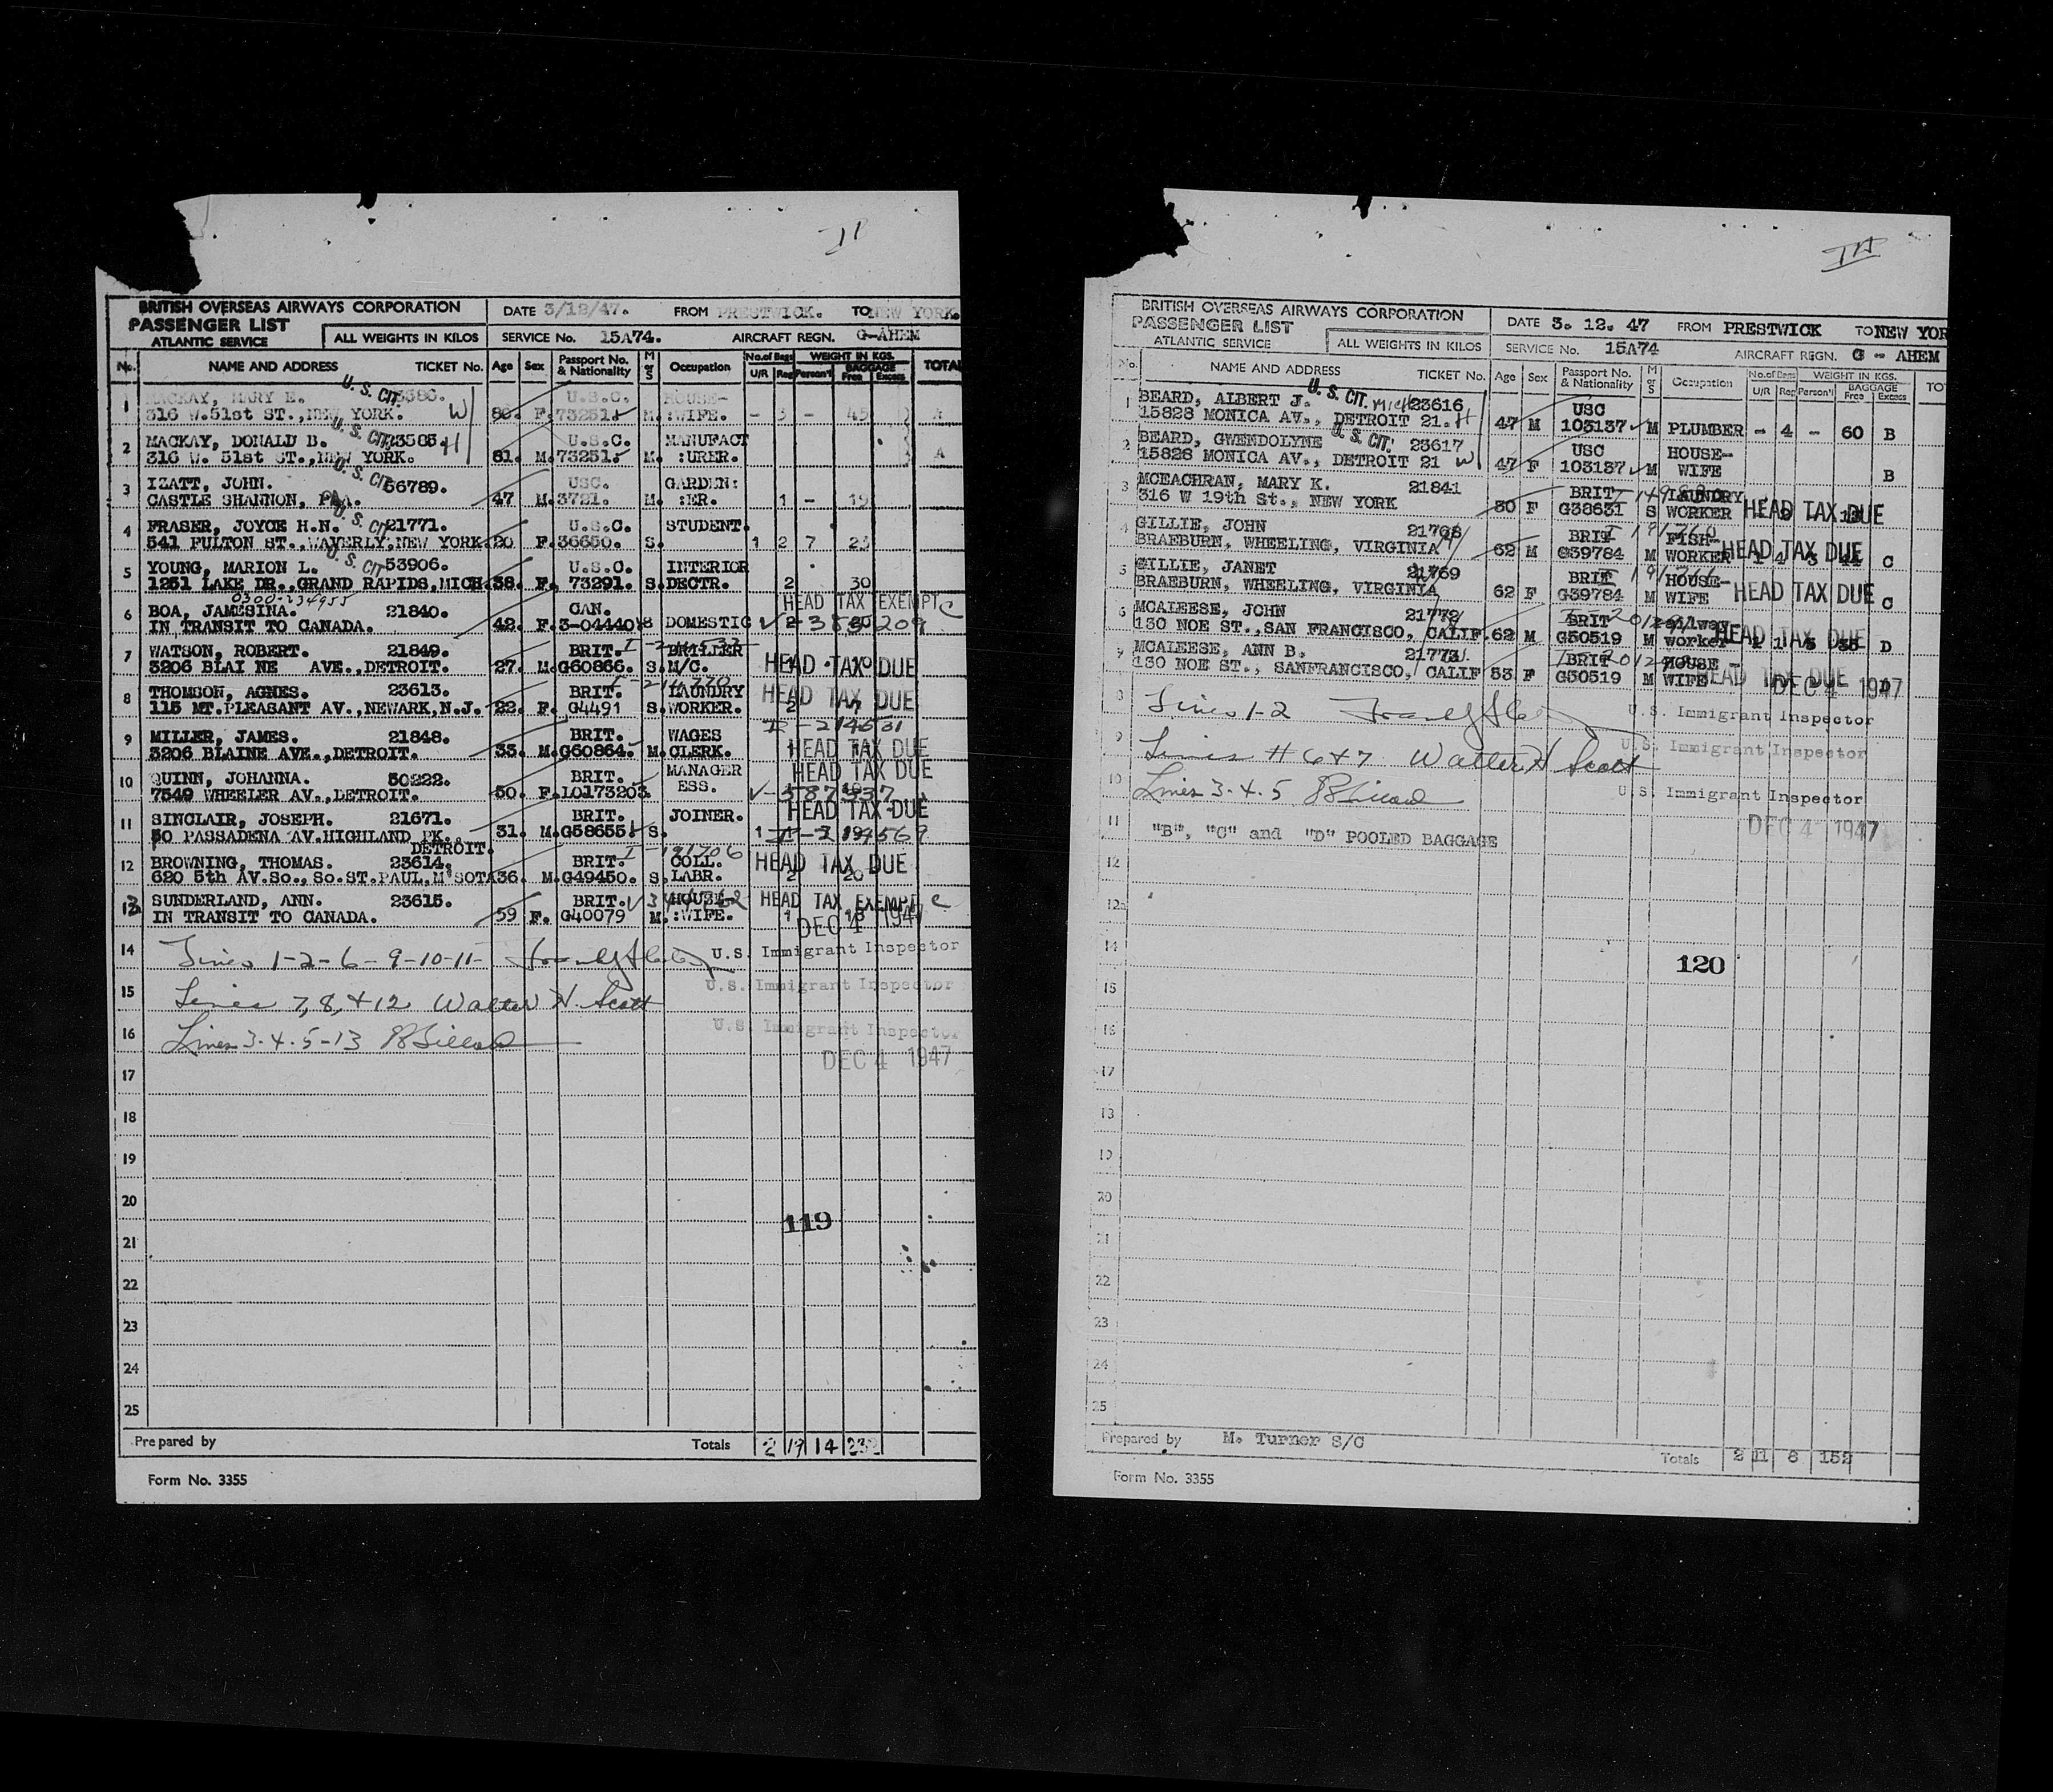 II
BRITISH OVERSEAS AIRWAYS CORPORATION
PASSENGER LIST
ATLANTIC SERVICE
ALL WEIGHTS IN KILOS
DATE 3/12/47. FROM PRESTWICK. TO NEW YORK.
SERVICE No. 15A74. AIRCRAFT REGN. G-AHEM
No. NAME AND ADDRESS TICKET No. Age Sex Passport No. & Nationality M or S Occupation No. of Bags U/R Reg WEIGHT IN KGS. Person'l BAGGAGE Free Excess TOTAL
1 MACKAY, MARY E. U. S. CIT. U.S.C. HOUSE-
316 W.51st ST., NEW YORK. W F. 73251. M. :WIFE. - 3 - 45 A
2 MACKAY, DONALD B. U. S. CIT. 23585. H U.S.C. MANUFACT
316 W. 51st ST., NEW YORK. 81. M. 73251. M. :URER. A
3 IZATT, JOHN. U. S. CIT. 56789. USC. GARDEN:
CASTLE SHANNON, PA. 47 M. 3721. M. :ER. 1 - 19
4 FRASER, JOYCE H.N. U. S. CIT. 21771. U.S.C. STUDENT.
541 FULTON ST., WAVERLY, NEW YORK. 20 F. 36650. S. 1 2 7 25
5 YOUNG, MARION L. U. S. CIT. 53906. U.S.C. INTERIOR
1251 LAKE DR., GRAND RAPIDS, MICH. 38. F. 73291. S. DECTR. 2 30
0300-234955
6 BOA, JAMESINA. 21840. CAN. HEAD TAX EXEMPT C
IN TRANSIT TO CANADA. 42. F. 3-04440 S DOMESTIC
7 WATSON, ROBERT. 21849. BRIT. DRILLER
3206 BLAI NE AVE., DETROIT. 27. M. G60866. S. M/C. HEAD TAX DUE
8 THOMSON, AGNES. 23613. BRIT. LAUNDRY HEAD TAX DUE
115 MT.PLEASANT AV., NEWARK, N.J. 22. F. G4491 S. WORKER. 2
I-214631
9 MILLER, JAMES. 21848. BRIT. WAGES
3206 BLAINE AVE., DETROIT. 33. M. G60864. M. CLERK. HEAD TAX DUE
10 QUINN, JOHANNA. 50222. BRIT. MANAGER HEAD TAX DUE
7549 WHEELER AV., DETROIT. 50. F. LO173203. ESS.
11 SINCLAIR, JOSEPH. 21671. BRIT. JOINER. HEAD TAX DUE
50 PASSADENA AV. HIGHLAND PK. 31. M. G58655 S. 1
DETROIT.
12 BROWNING, THOMAS. 23614. BRIT. I-191706 COLL. HEAD TAX DUE
620 5th AV.So., So.ST.PAUL, M'SOTA 36. M. G49450. S. LABR. 2 20
13 SUNDERLAND, ANN. 23615. BRIT. HOUSE- HEAD TAX EXEMPT C
IN TRANSIT TO CANADA. 59 F. G40079 M. :WIFE. 1 DEC 4 1947
14 Lines 1-2-6-9-10-11- U.S. Immigrant Inspector
15 Lines 7, 8, + 12 Walter H. Scott U.S. Immigrant Inspector
16 Lines 3-4-5-13 U.S. Immigrant Inspector
DEC 4 1947
17
18
19
20
119
21
22
23
24
25
Prepared by Totals 2 19 14 232
Form No. 3355
III
BRITISH OVERSEAS AIRWAYS CORPORATION
PASSENGER LIST
ATLANTIC SERVICE
ALL WEIGHTS IN KILOS
DATE 3. 12. 47 FROM PRESTWICK TO NEW YOR
SERVICE No. 15A74 AIRCRAFT REGN. G - AHEM
No. NAME AND ADDRESS TICKET No. Age Sex Passport No. & Nationality M or S Occupation No. of Bags U/R Reg WEIGHT IN KGS. Person'l BAGGAGE Free Excess TO
1 BEARD, ALBERT J. U. S. CIT. Mich 23616 USC
15828 MONICA AV., DETROIT 21. H 47 M 103137 M PLUMBER - 4 - 60 B
2 BEARD, GWENDOLYNE U. S. CIT. 23617 USC HOUSE-
15828 MONICA AV., DETROIT 21 W 47 F 103137 M WIFE B
3 MCEACHRAN, MARY K. 21841 BRIT LAUNDRY
316 W 19th St., NEW YORK 30 F G38631 S WORKER HEAD TAX DUE
4 GILLIE, JOHN 21768 BRIT I 191760 FISH-
BRAEBURN, WHEELING, VIRGINIA 62 M G39784 M WORKER HEAD TAX DUE C
5 GILLIE, JANET 21769 BRIT HOUSE-
BRAEBURN, WHEELING, VIRGINIA 62 F G39784 M WIFE HEAD TAX DUE C
6 MCALEESE, JOHN 21772 BRIT railway
130 NOE ST., SAN FRANCISCO, CALIF. 62 M G50519 M worker HEAD TAX DUE D
7 MCALEESE, ANN B. 21773 BRIT HOUSE -
130 NOE ST., SANFRANCISCO, CALIF 53 F G50519 M WIFE HEAD TAX DUE
DEC 4 1947
8 Lines 1-2 U.S. Immigrant Inspector
9 Lines # 6+7 Walter H Scott U.S. Immigrant Inspector
10 Lines 3-4-5 U.S. Immigrant Inspector
11 DEC 4 1947
"B", "C" and "D" POOLED BAGGAGE
12
14
120
15
16
17
19
20
21
22
23
24
25
Prepared by M. Turner S/C
Totals 2 11 8 152
Form No. 3355